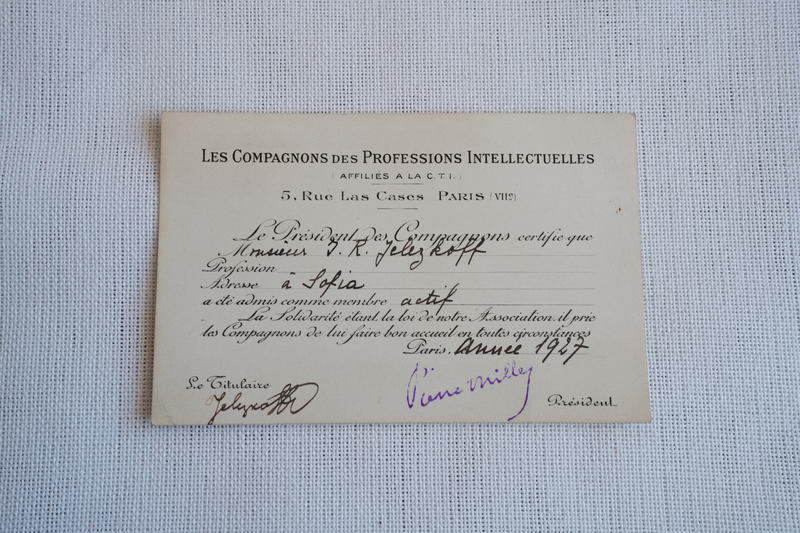 LES COMPAGNONS DES PROFESSIONS INTELLECTUELLES
(AFFILIÉS A LA C.T.I.)
5, RUE LAS CASES PARIS (VIIe)
Le Président des Compagnons certifie que
Monsieur J. K. Jelezkoff
Profession
Adresse à Sofia
a été admis comme membre actif
La Solidarité étant la loi de notre Association, il prie
les Compagnons de lui faire bon accueil en toutes circonstances
Paris, Année 1927
Le Titulaire
Pierre Mille
Président